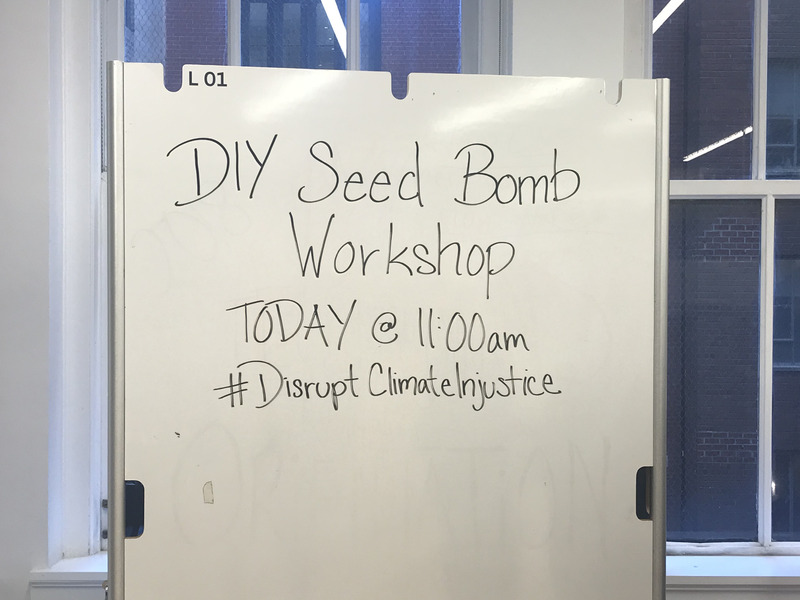 L 01
DIY Seed Bomb
Workshop
TODAY @ 11:00am
#DisruptClimateInjustice